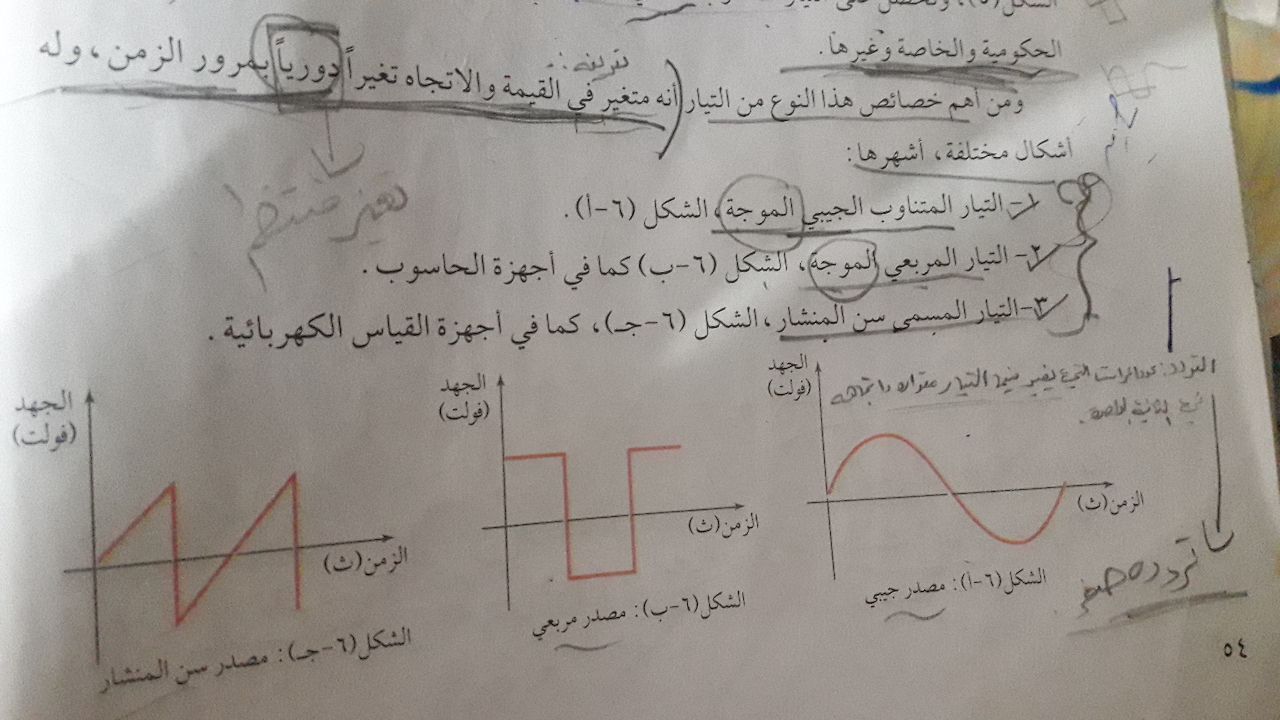 الحكومية والخاصة وغيرها.
ومن أهم خصائص هذا النوع من التيار أنه متغير في القيمة والاتجاه تغيراً دورياً بمرور الزمن، وله
أشكال مختلفة، أشهرها:
١- التيار المتناوب الجيبي الموجة، الشكل (٦-أ).
٢- التيار المربعي الموجة، الشكل (٦-ب) كما في أجهزة الحاسوب.
٣- التيار المسمى سن المنشار، الشكل (٦-جـ)، كما في أجهزة القياس الكهربائية.
تغير منتظم
الجهد
(فولت)
الزمن (ث)
الشكل (٦-أ): مصدر جيبي
الجهد
(فولت)
الزمن (ث)
الشكل (٦-ب): مصدر مربعي
الجهد
(فولت)
الزمن (ث)
الشكل (٦-جـ): مصدر سن المنشار
التردد: عدد المرات التي يغير فيها التيار مقداره واتجاهه
في الثانية الواحدة.
٥٤